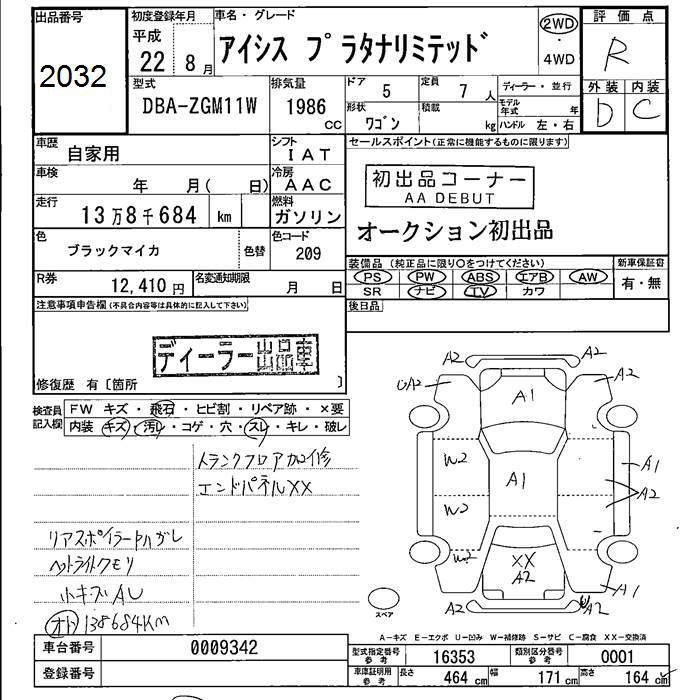 出品番号 初度登録年月 車名・グレード 2WD 評価点
平成 アイシス プラタナリミテッド ・ R
2032 22 8 月 4WD
型式 排気量 ドア 5 定員 7 人 ディーラー・並行 外装 内装
DBA-ZGM11W 1986 cc 形状 ワゴン 積載 kg モデル年式 年 D C
ハンドル 左・右
車歴 自家用 シフト IAT セールスポイント(正常に機能するものに限ります)
車検 年 月( 日) 冷房 AAC 初出品コーナー
AA DEBUT
走行 13万8千684 km 燃料 ガソリン オークション初出品
色 ブラックマイカ 色替 色コード 209
装備品(純正品に限り○をつけてください) 新車保証書
PS PW ABS エアB AW 有・無
SR ナビ TV カワ
R券 12,410 円 名変通知期限 月 日 後日品
注意事項申告欄(不具合内容等は具体的に記入して下さい)
ディーラー出品車
修復歴 有〔箇所 〕
検査員記入欄 FW キズ・飛石・ヒビ割・リペア跡・×要
内装 キズ・汚レ・コゲ・穴・スレ・キレ・破レ
トランクフロア加修
エンドパネルXX
リアスポイラートハガレ
ヘットライトクモリ
小キズAU
オド 138684KM
A2 A2
UA2 A2
A1
W2 A1
A1 A2
W2
W2 XX
A2 A1
A2 UA2
スペア
A-キズ E-エクボ U-凹み W-補修跡 S-サビ C-腐食 XX-交換済
車台番号 0009342 型式指定番号 参考 16353 類別区分番号 参考 0001
登録番号 車庫証明用 参考 長さ 464 cm 幅 171 cm 高さ 164 cm